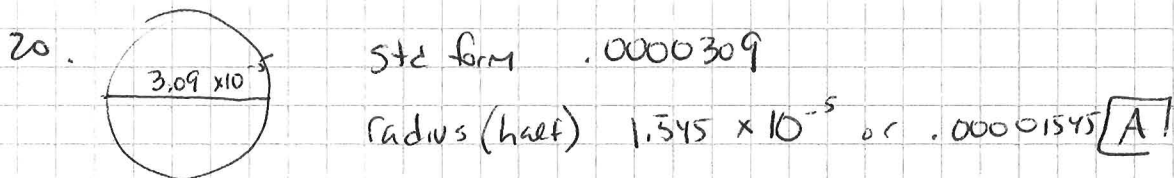 20.
3.09 x10⁻⁵
Std form .0000309
radius (half) 1.545 × 10⁻⁵ or .00001545 A!